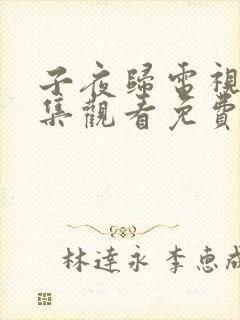 子夜歸電視
集觀看免費
林達永 李惠成